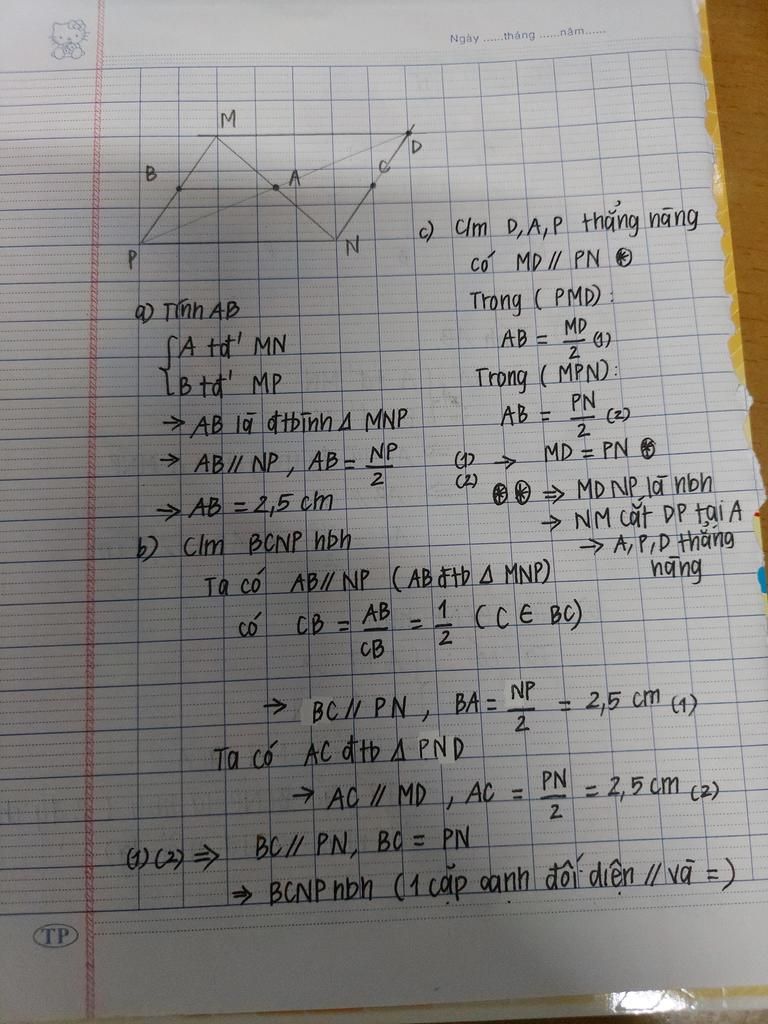 Ngày ......tháng ......năm......
M
D
B
A
C
P
N
a) Tính AB
A tđ' MN
B tđ' MP
→ AB là đtbình Δ MNP
→ AB // NP, AB = NP/2
→ AB = 2,5 cm
b) C/m BCNP hbh
Ta có AB // NP (AB đtb Δ MNP)
có CB = AB/CB = 1/2 (C ∈ BC)
→ BC // PN, BA = NP/2 = 2,5 cm (1)
Ta có AC đtb Δ PND
→ AC // MD, AC = PN/2 = 2,5 cm (2)
(1)(2) ⇒ BC // PN, BC = PN
⇒ BCNP hbh (1 cặp cạnh đối diện // và =)
c) C/m D, A, P thẳng hàng
có MD // PN ⊛
Trong (PMD):
AB = MD/2 (1)
Trong (MPN):
AB = PN/2 (2)
(1) (2) → MD = PN ⊛
⊛ ⊛ ⇒ MDNP là hbh
→ NM cắt DP tại A
→ A, P, D thẳng
hàng
TP